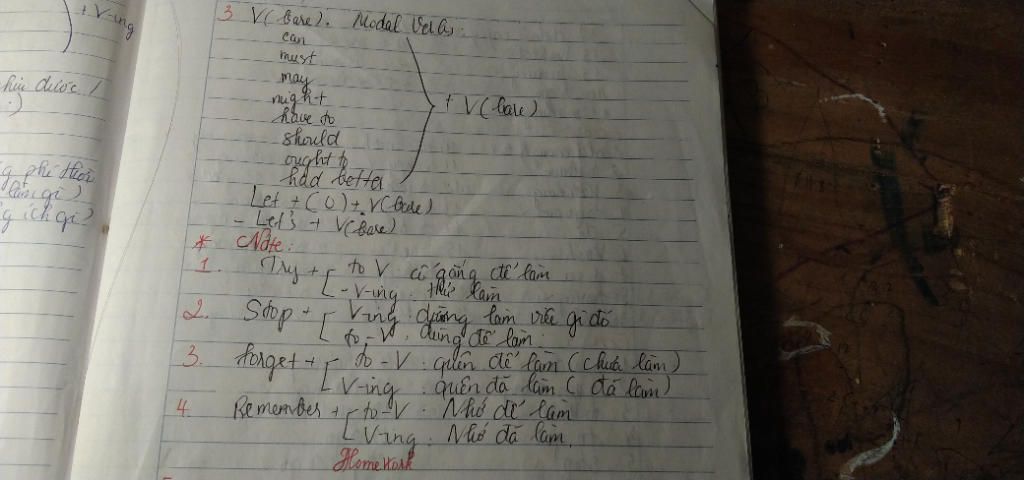 + V-ing
3 V(bare). Modal Verbs:
can
must
may
might
have to
should
ought to
had better
+ V(bare)
Let + (O) + V(bare)
- Let's + V(bare)
* Note:
1. Try + [ to V cố gắng để làm
- V-ing : thử làm
2. Stop + [ V-ing : dừng làm việc gì đó
to - V : dừng để làm.
3. forget + [ to - V : quên để làm (chưa làm)
V-ing : quên đã làm ( đã làm)
4. Remember + [ to - V : Nhớ để làm
V-ing : Nhớ đã làm.
Homework
được /
phí thời
làm gì)
g ích gì?